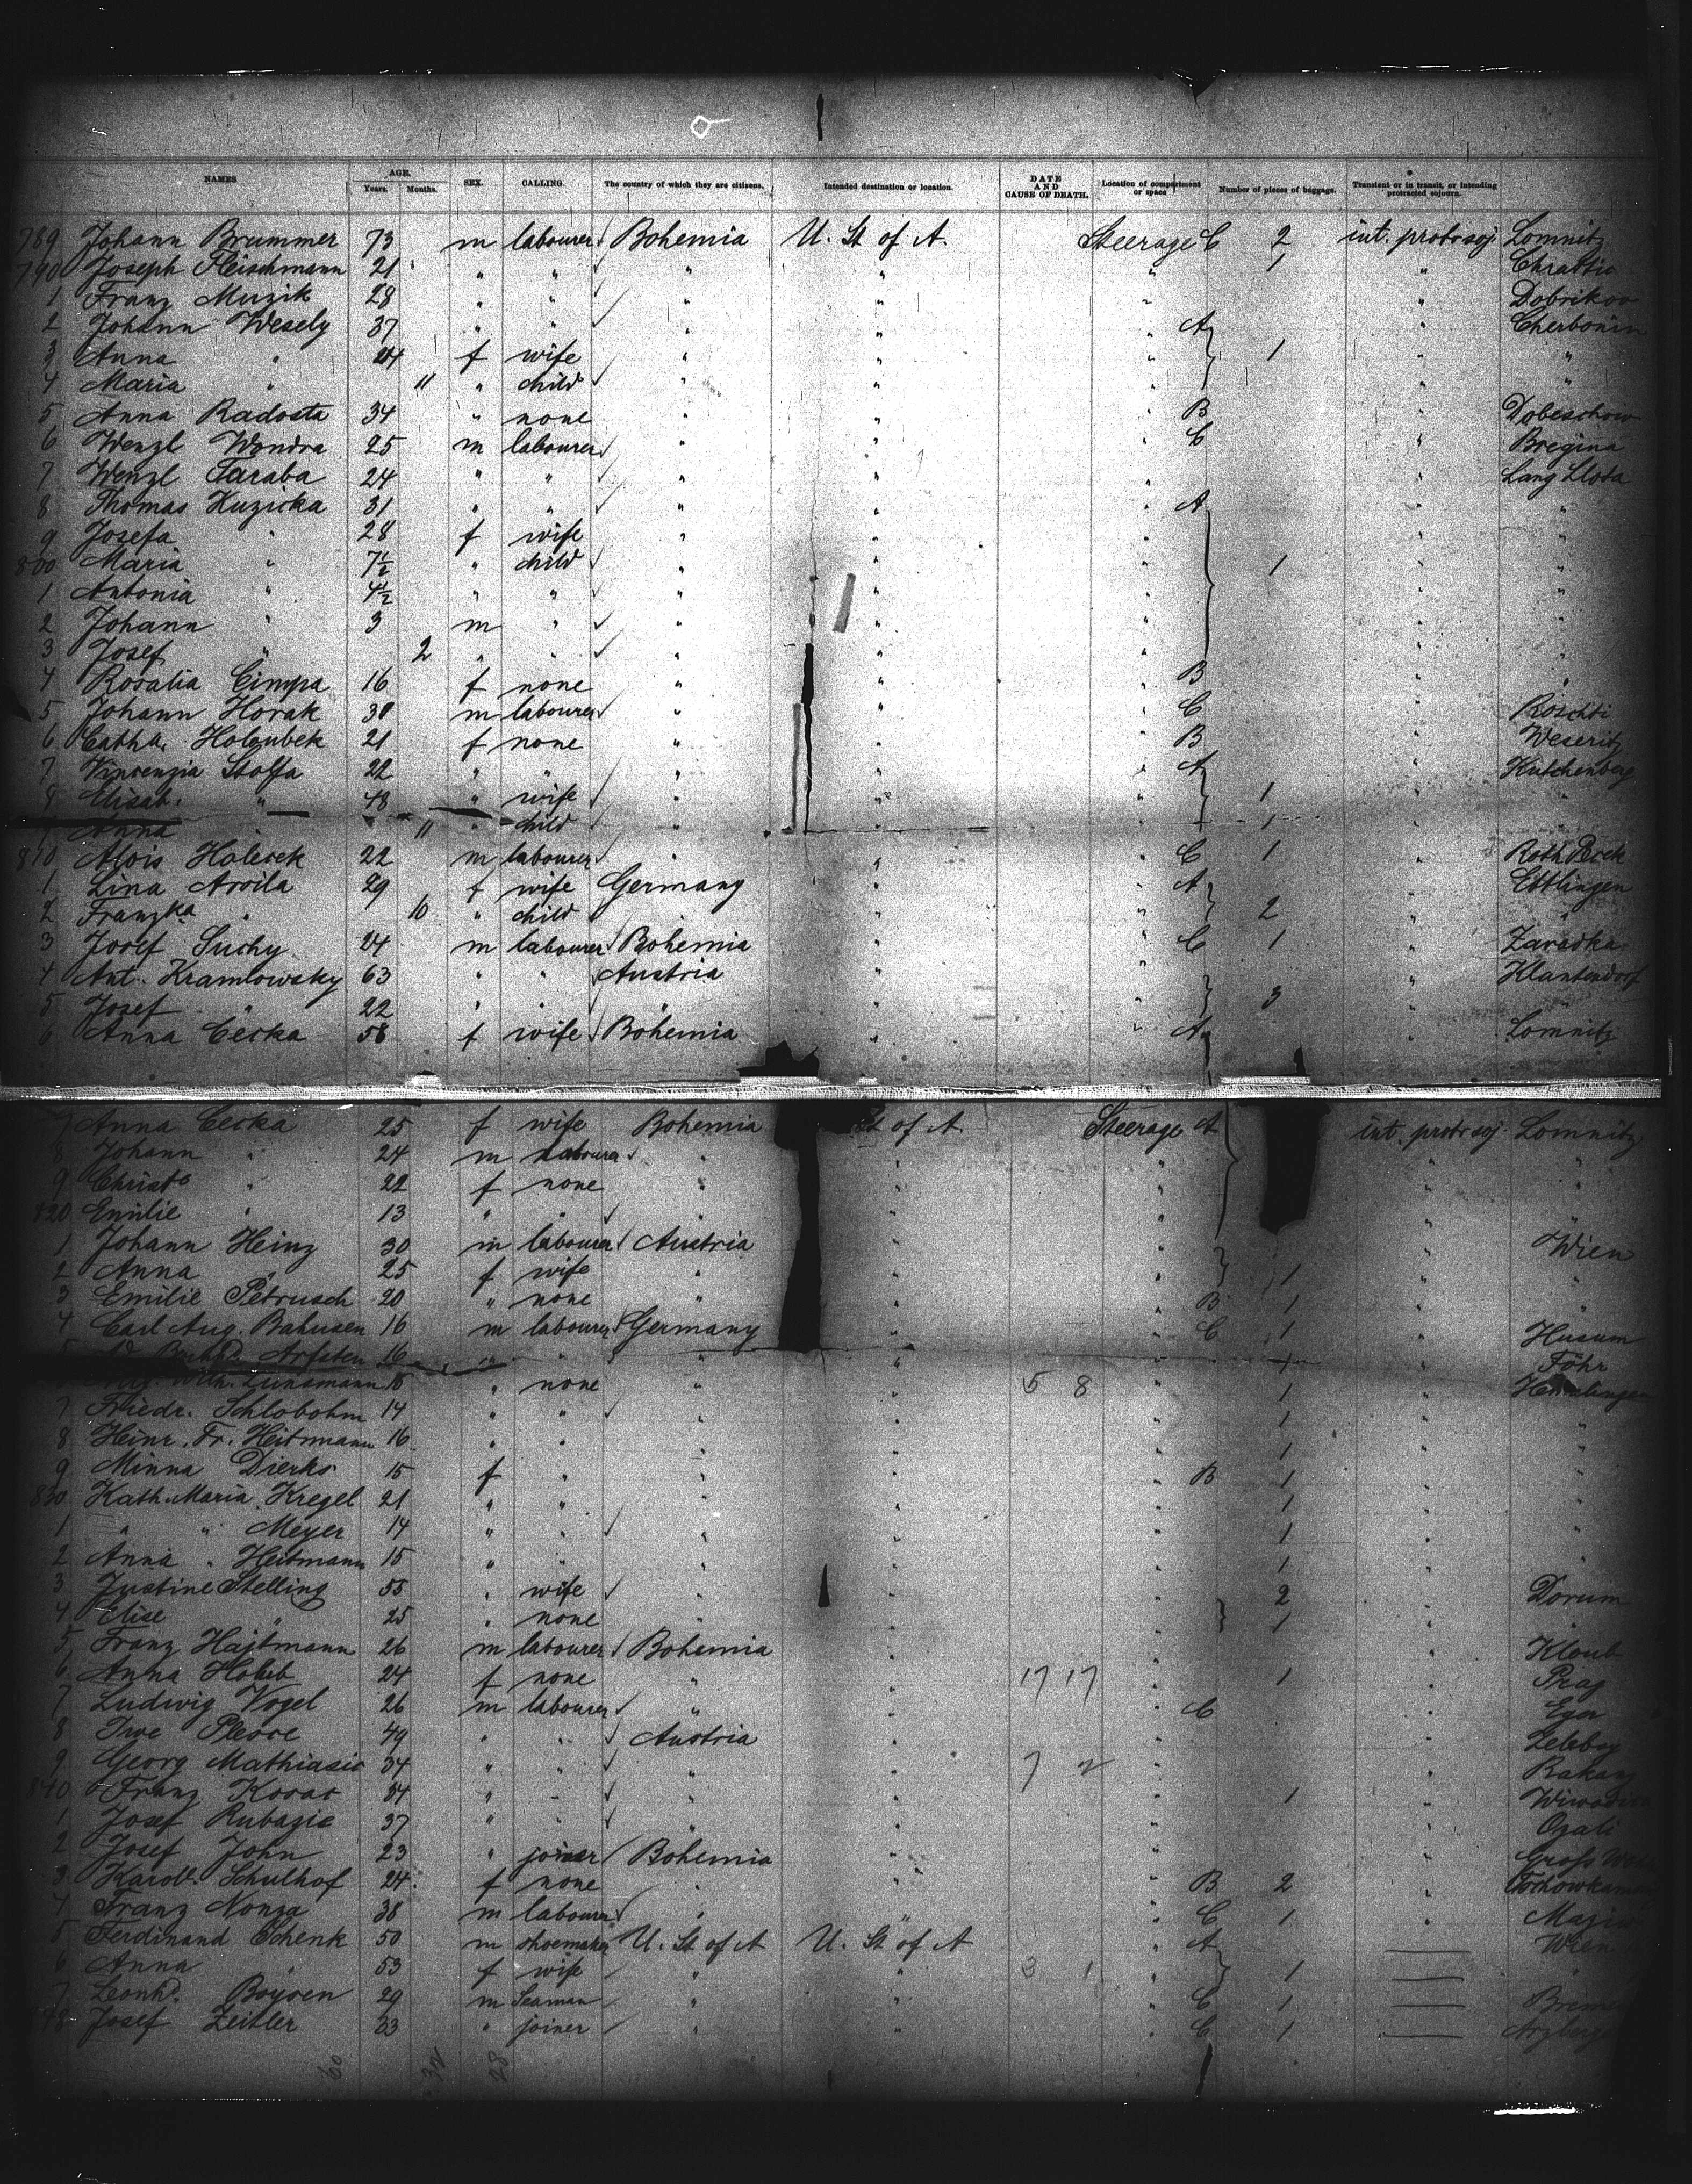 NAMES AGE. Years. Months. SEX. CALLING. The country of which they are citizens. Intended destination or location. DATE AND CAUSE OF DEATH. Location of compartment or space Number of pieces of baggage. Transient or in transit, or intending protracted sojourn.
789 Johann Brummer 73 m labourer Bohemia U. St of A. Steerage C 2 int. protr soj. Lomnitz
790 Joseph Fleischmann 21 " " " " " 1 "
1 Franz Muzik 28 " " " " " " Dobrikov
2 Johann Wesely 37 " " " " " A " Cherbonin
3 Anna " 24 f wife " " " 1 " "
4 Maria " 11 " child " " " " "
5 Anna Radosta 34 " none " " " B " Dobeschow
6 Wenzl Wondra 25 m labourer " " " C " Bregina
7 Wenzl Taraba 24 " " " " " " Lang Lhota
8 Thomas Kuzicka 31 " " " " " A " "
9 Josefa " 28 f wife " " " " "
800 Maria " 7½ " child " " " 1 " "
1 Antonia " 4½ " " " " " " "
2 Johann " 3 m " " " " " "
3 Josef " 2 " " " " " " "
4 Rosalia Cimpa 16 f none " " " B " "
5 Johann Horak 30 m labourer " " " C " Roschti
6 Catha. Holoubek 21 f none " " " B " Weseritz
7 Vincenzia Stolfa 22 " " " " " A " Kutchenberg
8 Elisab. " 48 " wife " " " 1 " "
Anna " 11 " child " " " 1 " "
810 Alois Holecek 22 m labourer " " " C 1 " Roth Perek
1 Lina Arvila 29 f wife Germany " " A " Ettlingen
2 Franzka " 10 " child " " " 2 " "
3 Josef Suchy 24 m labourer Bohemia " " C 1 " Zavadka
4 Ant. Kramlowsky 63 " " Austria " " " Klantendorf
5 Josef " 22 " " " " " 3 " "
6 Anna Cecka 58 f wife Bohemia " " A " Lomnitz
7 Anna Cecka 25 f wife Bohemia St of A. Steerage A int. protr soj Lomnitz
8 Johann " 24 m labourer " " " " "
9 Christe " 22 f none " " " " "
820 Emilie " 13 " " " " " " "
1 Johann Heinz 30 m labourer Austria " " " Wien
2 Anna " 25 f wife " " " 1 " "
3 Emilie Petrusch 20 " none " " " B 1 " "
4 Carl Aug. Bahnsen 16 m labourer Germany " " C 1 " Husum
5 Arfsten 16 " " " " " 1 " Föhr
Lünsmann 15 " none " " 5 8 " 1 "
7 Friedr. Schlobohm 14 " " " " " 1 " "
8 Heinr. Fr. Heitmann 16 " " " " " 1 " "
9 Minna Dierks 15 f " " " " B 1 " "
830 Kath. Maria Kregel 21 " " " " " 1 " "
1 " " Meyer 14 " " " " " 1 " "
2 Anna " Heitmann 15 " " " " " 1 " "
3 Justine Stelling 55 " wife " " " 2 " Dorum
4 Elise " 25 " none " " " 1 " "
5 Franz Hajtmann 26 m labourer Bohemia " " " Kloub
6 Anna Holub 24 f none " " 17 17 " 1 " Prag
7 Ludwig Vogel 26 m labourer " " " C " Eger
8 Ive Plesce 49 " " Austria " " "
9 Georg Mathiasic 34 " " " " 7 2 " "
840 Franz Kovac 34 " " " " " 1 "
1 Josef Rubazic 37 " " " " " " Ozali
2 Josef John 23 " joiner Bohemia " " " Gross
3 Karol. Schulhof 24 f none " " " B 2 "
4 Franz Nonza 38 m labourer " " " C 1 "
5 Ferdinand Schenk 50 m shoemaker U. St of A U. St of A " A Wien
6 Anna " 53 f wife " " 3 1 " 1 "
7 Leonh. Boysen 29 m Seaman " " " C 1
48 Josef Zeitler 33 " joiner " " " C 1